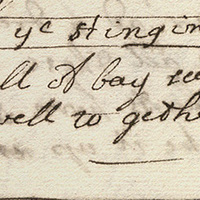 ye stingin
ll of bay
well to geth